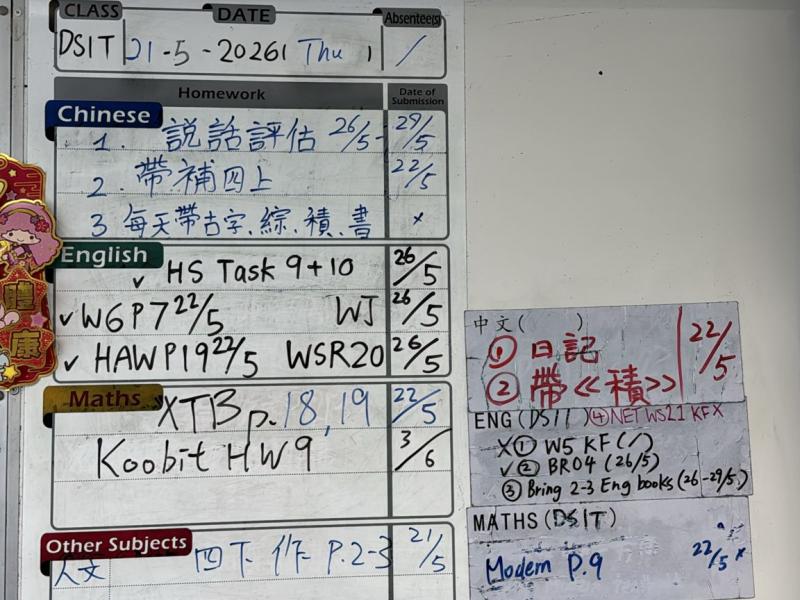 CLASS DATE Absentee(s)
DSIT 21-5-2026 Thu /
Homework Date of Submission
Chinese
1. 說話評估 26/5- 29/5
2. 帶補四上 22/5
3 每天帶古字、綜、積、書 x
English
✓ HS Task 9+10 26/5
✓ W6P7 22/5 WJ 26/5
✓ HAWP19 22/5 WSR20 26/5
Maths
XTB p.18,19 22/5
Koobit HW9 3/6
Other Subjects
人文 四下 作 P.2-3 21/5
體
康
中文( )
① 日記 22/5
② 帶<<積>>
ENG(DSIT) ④NET WS21 KF X
X① W5 KF(/)
✓② BR04 (26/5)
③ Bring 2-3 Eng books (26-29/5.)
MATHS(DSIT)
Modern P.9 22/5 x